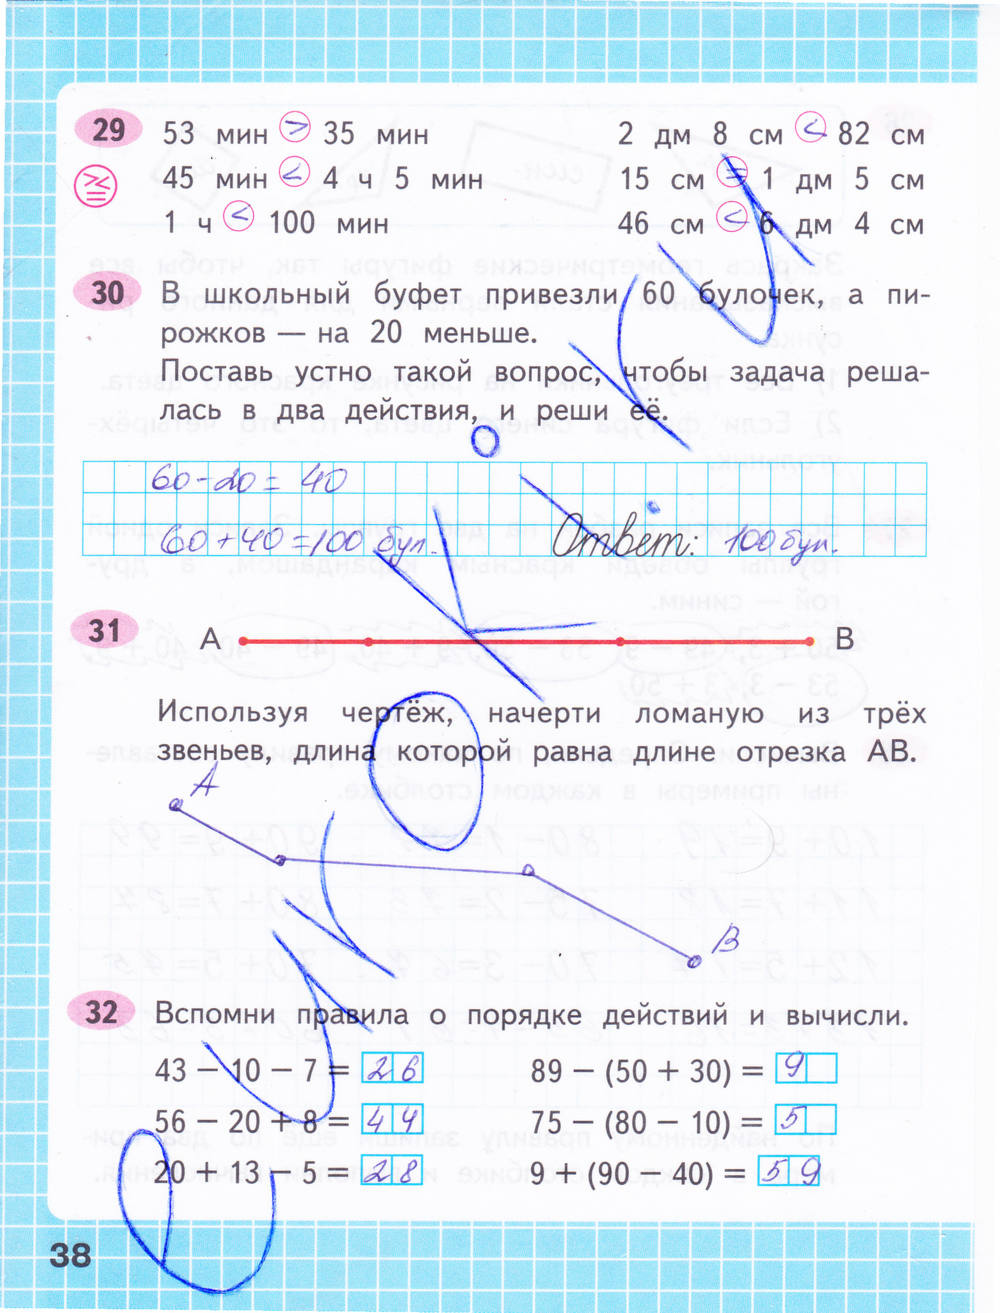 29 53 мин > 35 мин 2 дм 8 см < 82 см
45 мин < 4 ч 5 мин 15 см = 1 дм 5 см
1 ч < 100 мин 46 см < 6 дм 4 см
30 В школьный буфет привезли 60 булочек, а пи-
рожков — на 20 меньше.
Поставь устно такой вопрос, чтобы задача реша-
лась в два действия, и реши её.
60-20=40
60+40=100 бул. Ответ: 100 бул.
31 А В
Используя чертёж, начерти ломаную из трёх
звеньев, длина которой равна длине отрезка АВ.
А
В
32 Вспомни правила о порядке действий и вычисли.
43 – 10 – 7 = 26 89 – (50 + 30) = 9
56 – 20 + 8 = 44 75 – (80 – 10) = 5
20 + 13 – 5 = 28 9 + (90 – 40) = 59
38